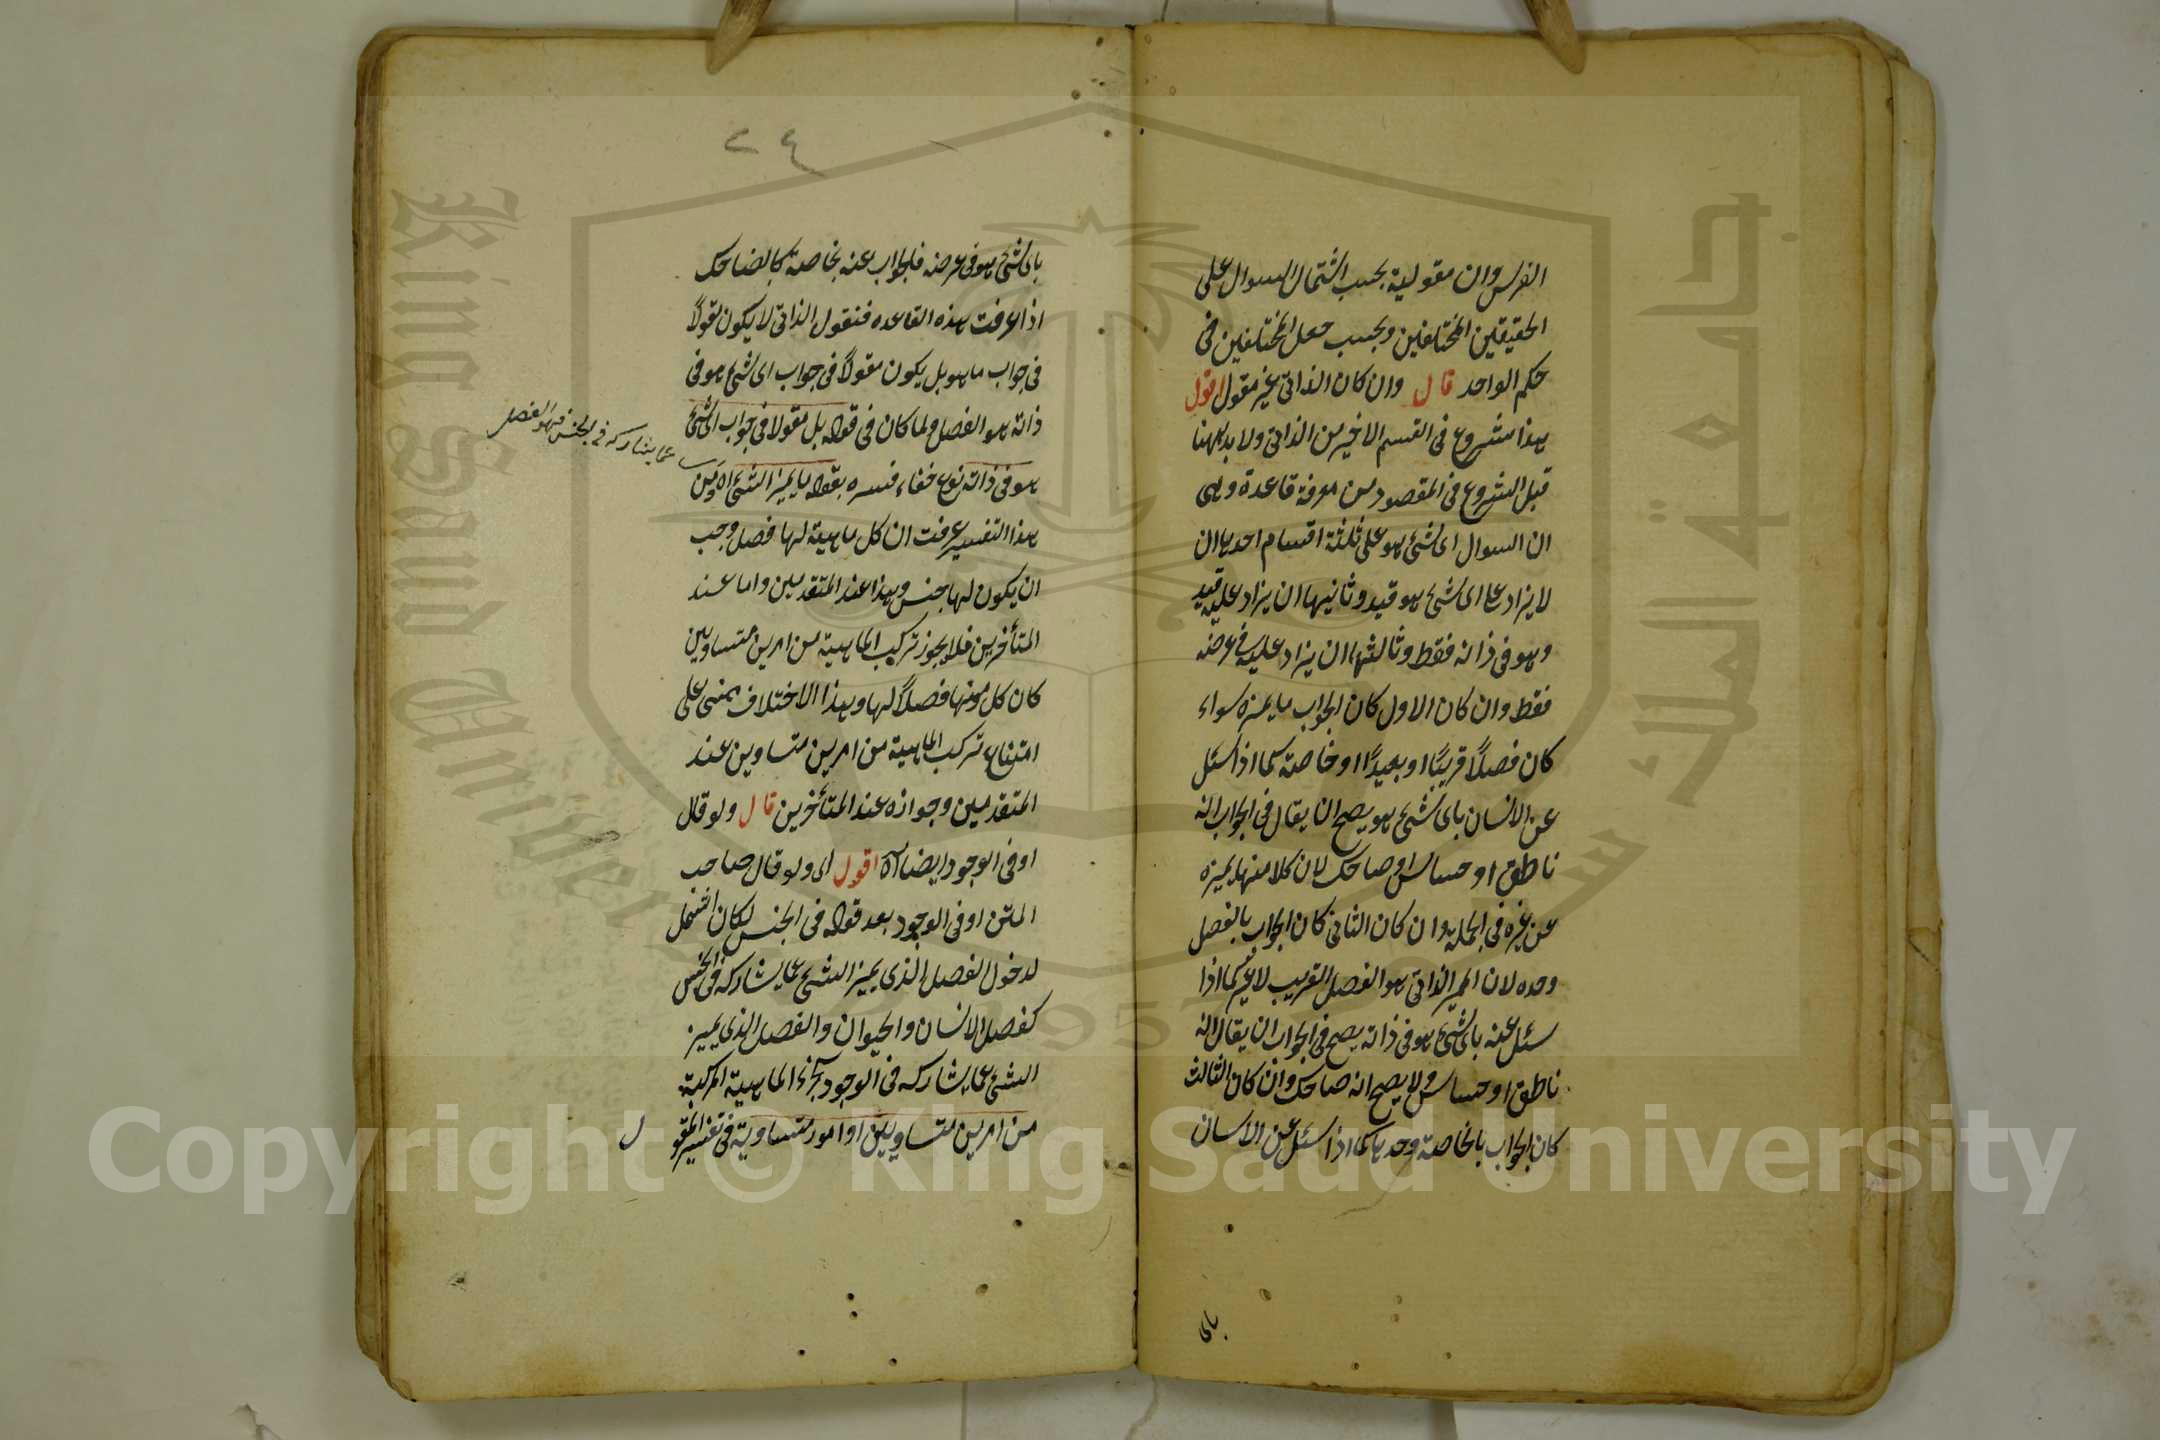 الفرس وان مقولية بحسب اشتمال السوال على
الحقيقتين المختلفين وبحسب جعل المختلفين فى
حكم الواحد قال وان كان الذاتى غير مقول اقول
هذا شروع فى القسم الاخير من الذاتى ولا بد ههنا
قبل الشروع فى المقصود من معرفة قاعدة وهى
ان السوال اى شئ هو على ثلثة اقسام احديها ان
لا يزاد على اى شئ هو قيد وثانيها ان يزاد عليه قيد
وهو فى ذاته فقط وثالثها ان يزاد عليه فى عرضه
فقط وان كان الاول كان الجواب بما يميزه سواء
كان فصلاً قريبًا او بعيدًا او خاصة كما اذا سئل
عن الانسان باى شئ هو يصح ان يقال فى الجواب انه
ناطق او حساس او ضاحك لان كلا منها يميزه
عن غيره فى الجملة وان كان الثانى كان الجواب بالفصل
وحده لان المميز الذاتى هو الفصل القريب لا غير كما اذا
سئل عنه باى شئ هو فى ذاته يصح فى الجواب ان يقال انه
ناطق او حساس ولا يصح انه ضاحك وان كان الثالث
كان الجواب بالخاصة وحدها كما اذا سئل عن الانسان
باى
٢٤
باى شئ هو فى عرضه فالجواب عنه بخاصة كالضاحك
اذا عرفت هذه القاعده فنقول الذاتى لا يكون مقولاً
فى جواب ما هو بل يكون مقولاً فى جواب اى شئ هو فى
ذاته هو الفصل ولما كان فى قوله بل مقولا فى جواب اى شئ
هو فى ذاته نوع خفاء فسره بقوله ما يميز الشئ اه ومن
عما يشاركه فى الجنس فهو الفصل
هذا التفسير عرفت ان كل ماهية لها فصل وجب
ان يكون لها جنس وهذا عند المتقدمين واما عند
المتأخرين فلا يجوز تركيب الماهية من امرين متساويين
كان كل منها فصلاً لها وهذا الاختلاف مبنى على
امتناع تركب الماهية من امرين متساوين عند
المتقدمين وجوازه عند المتأخرين قال ولو قال
او فى الوجود ايضا آه اقول اى ولو قال صاحب
المتن او فى الوجود بعد قوله فى الجنس لكان اشمل
لدخول الفصل الذى يميز الشئ عما يشاركه فى الجنس
كفصل الانسان والحيوان والفصل الذى يميز
الشئ عما يشاركه فى الوجود كجزء الماهية المركبة
من امرين متساويين او امور متساوية فى تفسير المقو
ل
جامعة الملك سعود
King Saud University
1957
Copyright © King Saud University